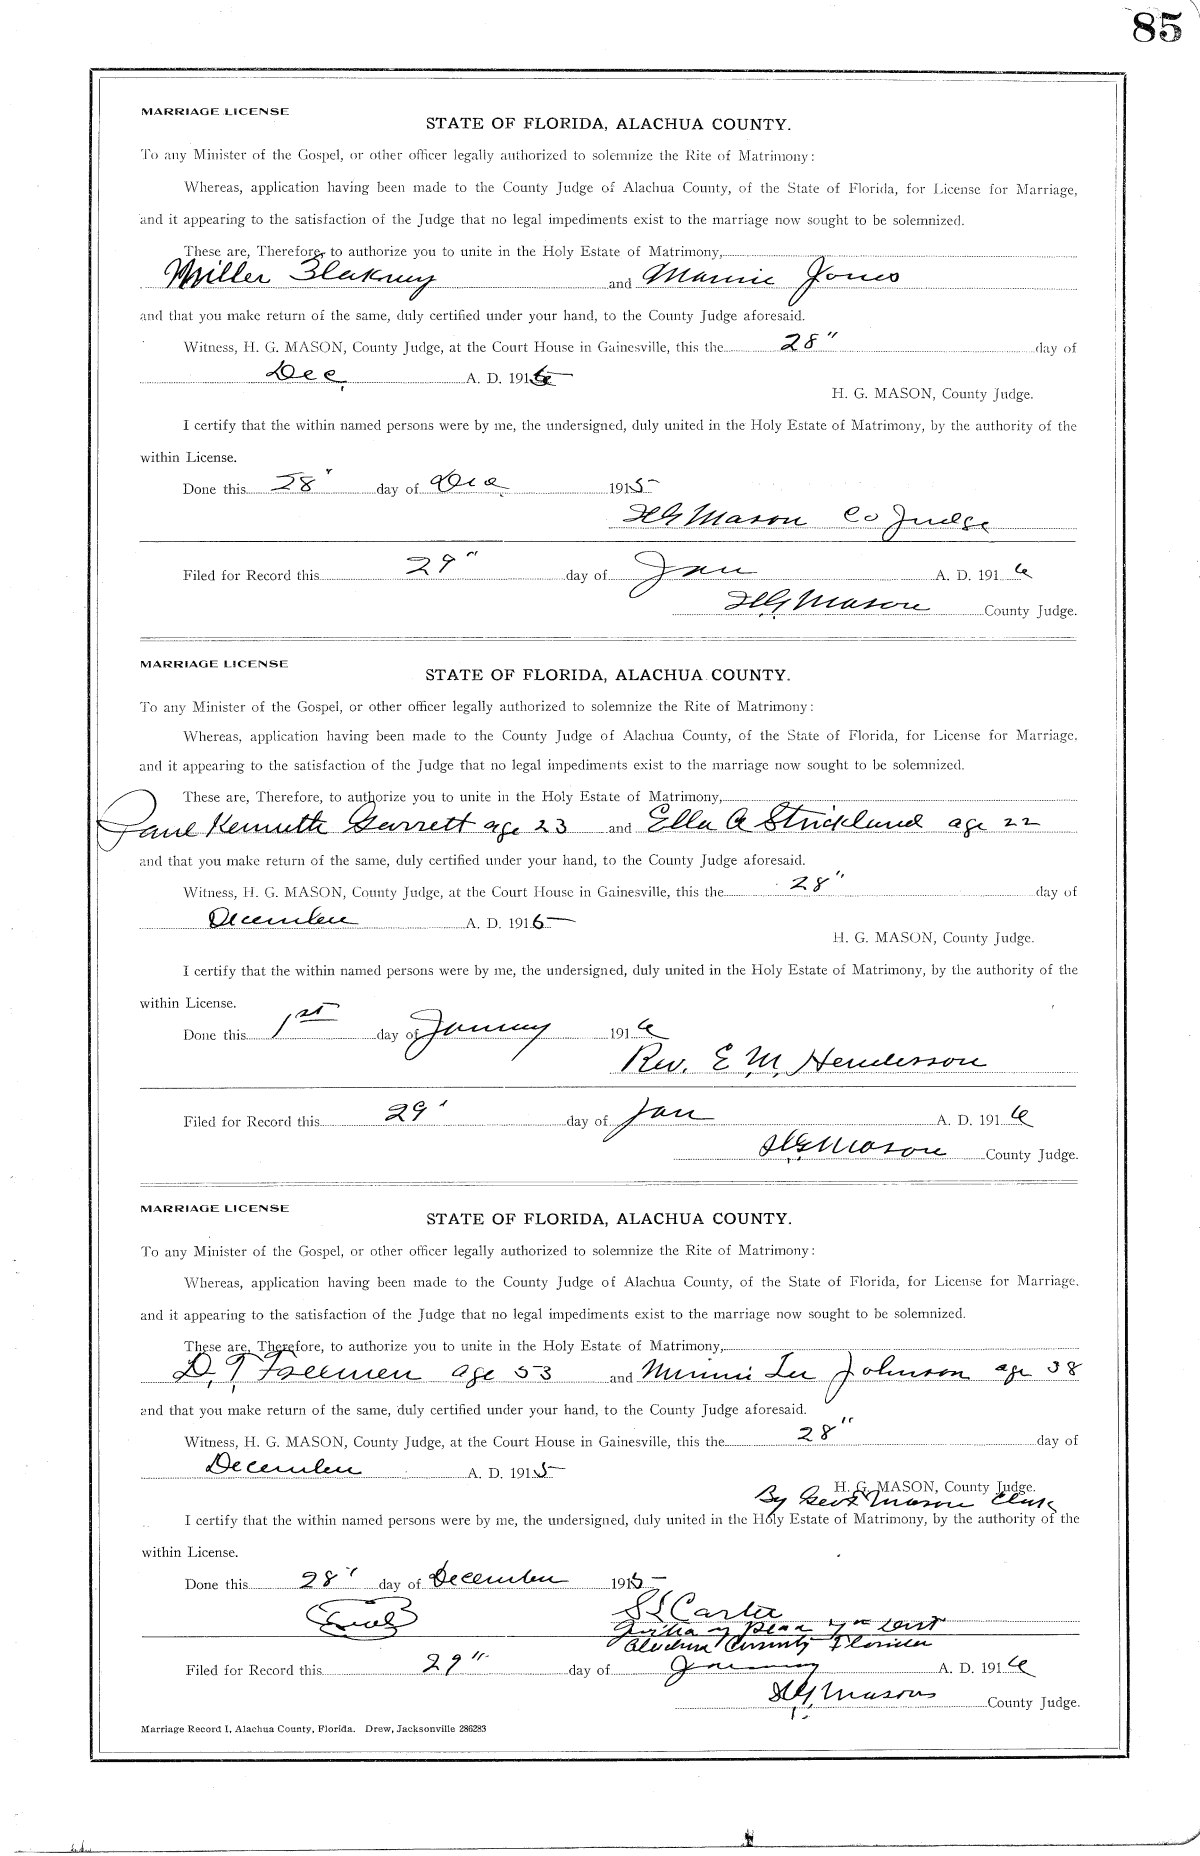 85
MARRIAGE LICENSE
STATE OF FLORIDA, ALACHUA COUNTY.
To any Minister of the Gospel, or other officer legally authorized to solemnize the Rite of Matrimony:
Whereas, application having been made to the County Judge of Alachua County, of the State of Florida, for License for Marriage,
and it appearing to the satisfaction of the Judge that no legal impediments exist to the marriage now sought to be solemnized.
These are, Therefore, to authorize you to unite in the Holy Estate of Matrimony,
Miller Blakney and Mamie Jones
and that you make return of the same, duly certified under your hand, to the County Judge aforesaid.
Witness, H. G. MASON, County Judge, at the Court House in Gainesville, this the 28" day of
Dec, A. D. 1915
H. G. MASON, County Judge.
I certify that the within named persons were by me, the undersigned, duly united in the Holy Estate of Matrimony, by the authority of the
within License.
Done this 28" day of Dec 1915
H G Mason Co Judge
Filed for Record this 29" day of Jan A. D. 1916
H. G. Mason County Judge.
MARRIAGE LICENSE
STATE OF FLORIDA, ALACHUA COUNTY.
To any Minister of the Gospel, or other officer legally authorized to solemnize the Rite of Matrimony:
Whereas, application having been made to the County Judge of Alachua County, of the State of Florida, for License for Marriage,
and it appearing to the satisfaction of the Judge that no legal impediments exist to the marriage now sought to be solemnized.
These are, Therefore, to authorize you to unite in the Holy Estate of Matrimony,
Paul Kenneth Garrett age 23 and Ella A Strickland age 22
and that you make return of the same, duly certified under your hand, to the County Judge aforesaid.
Witness, H. G. MASON, County Judge, at the Court House in Gainesville, this the 28" day of
December A. D. 1915
H. G. MASON, County Judge.
I certify that the within named persons were by me, the undersigned, duly united in the Holy Estate of Matrimony, by the authority of the
within License.
Done this 1st day of January 1916
Rev. E. M. Henderson
Filed for Record this 29" day of Jan A. D. 1916
H. G. Mason County Judge.
MARRIAGE LICENSE
STATE OF FLORIDA, ALACHUA COUNTY.
To any Minister of the Gospel, or other officer legally authorized to solemnize the Rite of Matrimony:
Whereas, application having been made to the County Judge of Alachua County, of the State of Florida, for License for Marriage,
and it appearing to the satisfaction of the Judge that no legal impediments exist to the marriage now sought to be solemnized.
These are, Therefore, to authorize you to unite in the Holy Estate of Matrimony,
D. T. Freemen age 53 and Minnie Lee Johnson age 38
and that you make return of the same, duly certified under your hand, to the County Judge aforesaid.
Witness, H. G. MASON, County Judge, at the Court House in Gainesville, this the 28" day of
December A. D. 1915
H. G. MASON, County Judge.
By Geo S Mason Clerk
I certify that the within named persons were by me, the undersigned, duly united in the Holy Estate of Matrimony, by the authority of the
within License.
Done this 28" day of December 1915
Seal S L Carter
Justice of Peace 7th Dist
Alachua County Florida
Filed for Record this 29" day of January A. D. 1916
H. G. Mason County Judge.
Marriage Record I, Alachua County, Florida. Drew, Jacksonville 286283